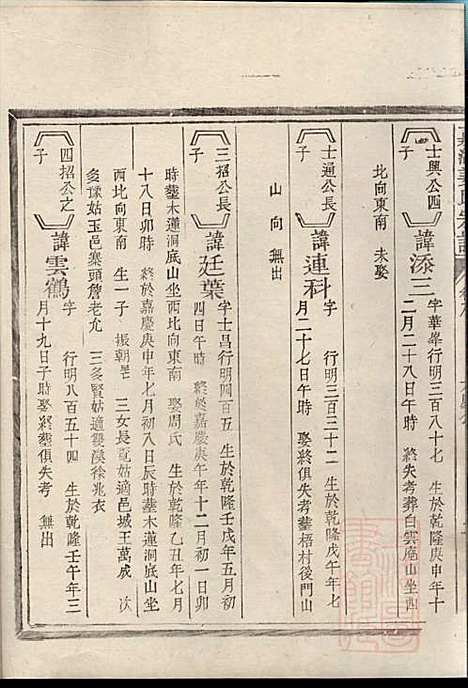 士興公四
子
諱添三
字華峯行明三百八十七 生於乾隆庚申年十
二月二十八日午時 終失考葬白雲庵山坐西
北向東南 未娶
士通公長
子
諱連科
字 行明三百三十二 生於乾隆戊午年七
月二十七日午時 娶終俱失考𦵏梧村後門山
山向 無出
三招公長
子
諱廷葉
字士昌行明四百五 生於乾隆壬戌年五月初
四日午時 終於嘉慶庚午年十二月初一日卯
時𦵏木蓮洞底山坐西北向東南 娶周氏 生於乾隆乙丑年七月
十八日卯時 終於嘉慶庚申年七月初八日辰時𦵏木蓮洞底山坐
西北向東南 生一子 振朝 三女長寬姑適邑城王萬成 次
多謙姑玉邑寨頭詹老允 三冬賢姑適雙溪徐兆衣
四招公之
子
諱雲鶴
字 行明八百五十四 生於乾隆壬午年三
月十九日子時娶終𦵏俱失考 無出